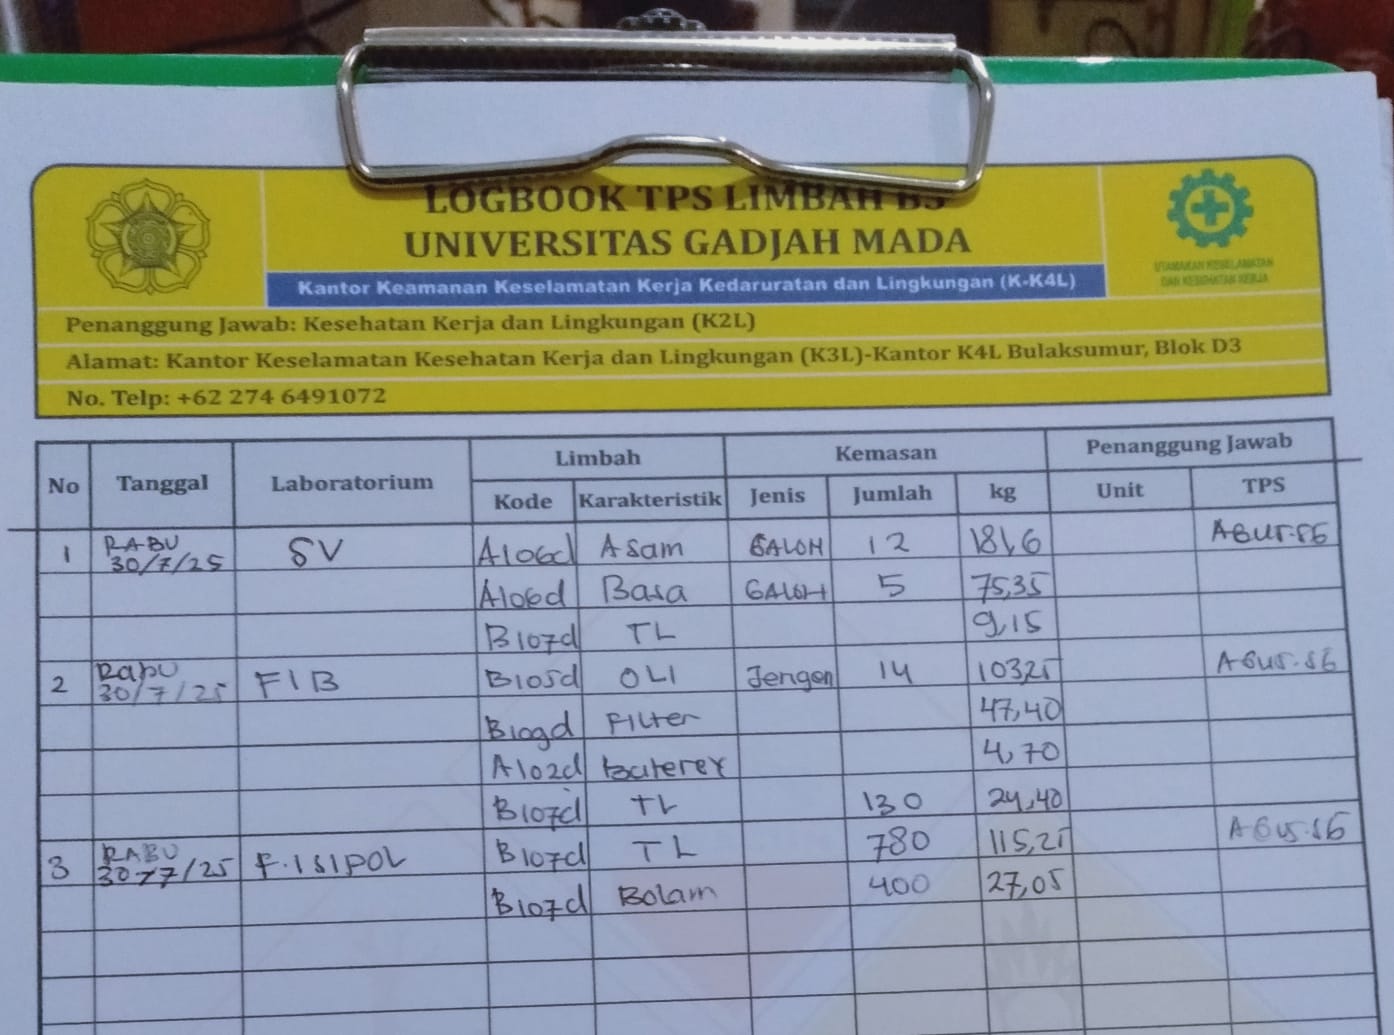 LOGBOOK TPS LIMBAH B3
UNIVERSITAS GADJAH MADA
Kantor Keamanan Keselamatan Kerja Kedaruratan dan Lingkungan (K-K4L)
UTAMAKAN KESELAMATAN
DAN KESEHATAN KERJA
Penanggung Jawab: Kesehatan Kerja dan Lingkungan (K2L)
Alamat: Kantor Keselamatan Kesehatan Kerja dan Lingkungan (K3L)-Kantor K4L Bulaksumur, Blok D3
No. Telp: +62 274 6491072
No Tanggal Laboratorium Limbah Kemasan Penanggung Jawab
Kode Karakteristik Jenis Jumlah kg Unit TPS
1 RABU 30/7/25 SV A106d Asam GALON 12 181,6
A106d Basa GALON 5 75,35
B107d TL 9,15
2 Rabu 30/7/25 FIB B105d OLI Jerigen 14 103,25
B109d Filter 47,40
A102d baterey 4,70
B107d TL 130 24,40
3 RABU 30/7/25 F.ISIPOL B107d TL 780 115,25
B107d Bolam 400 27,05